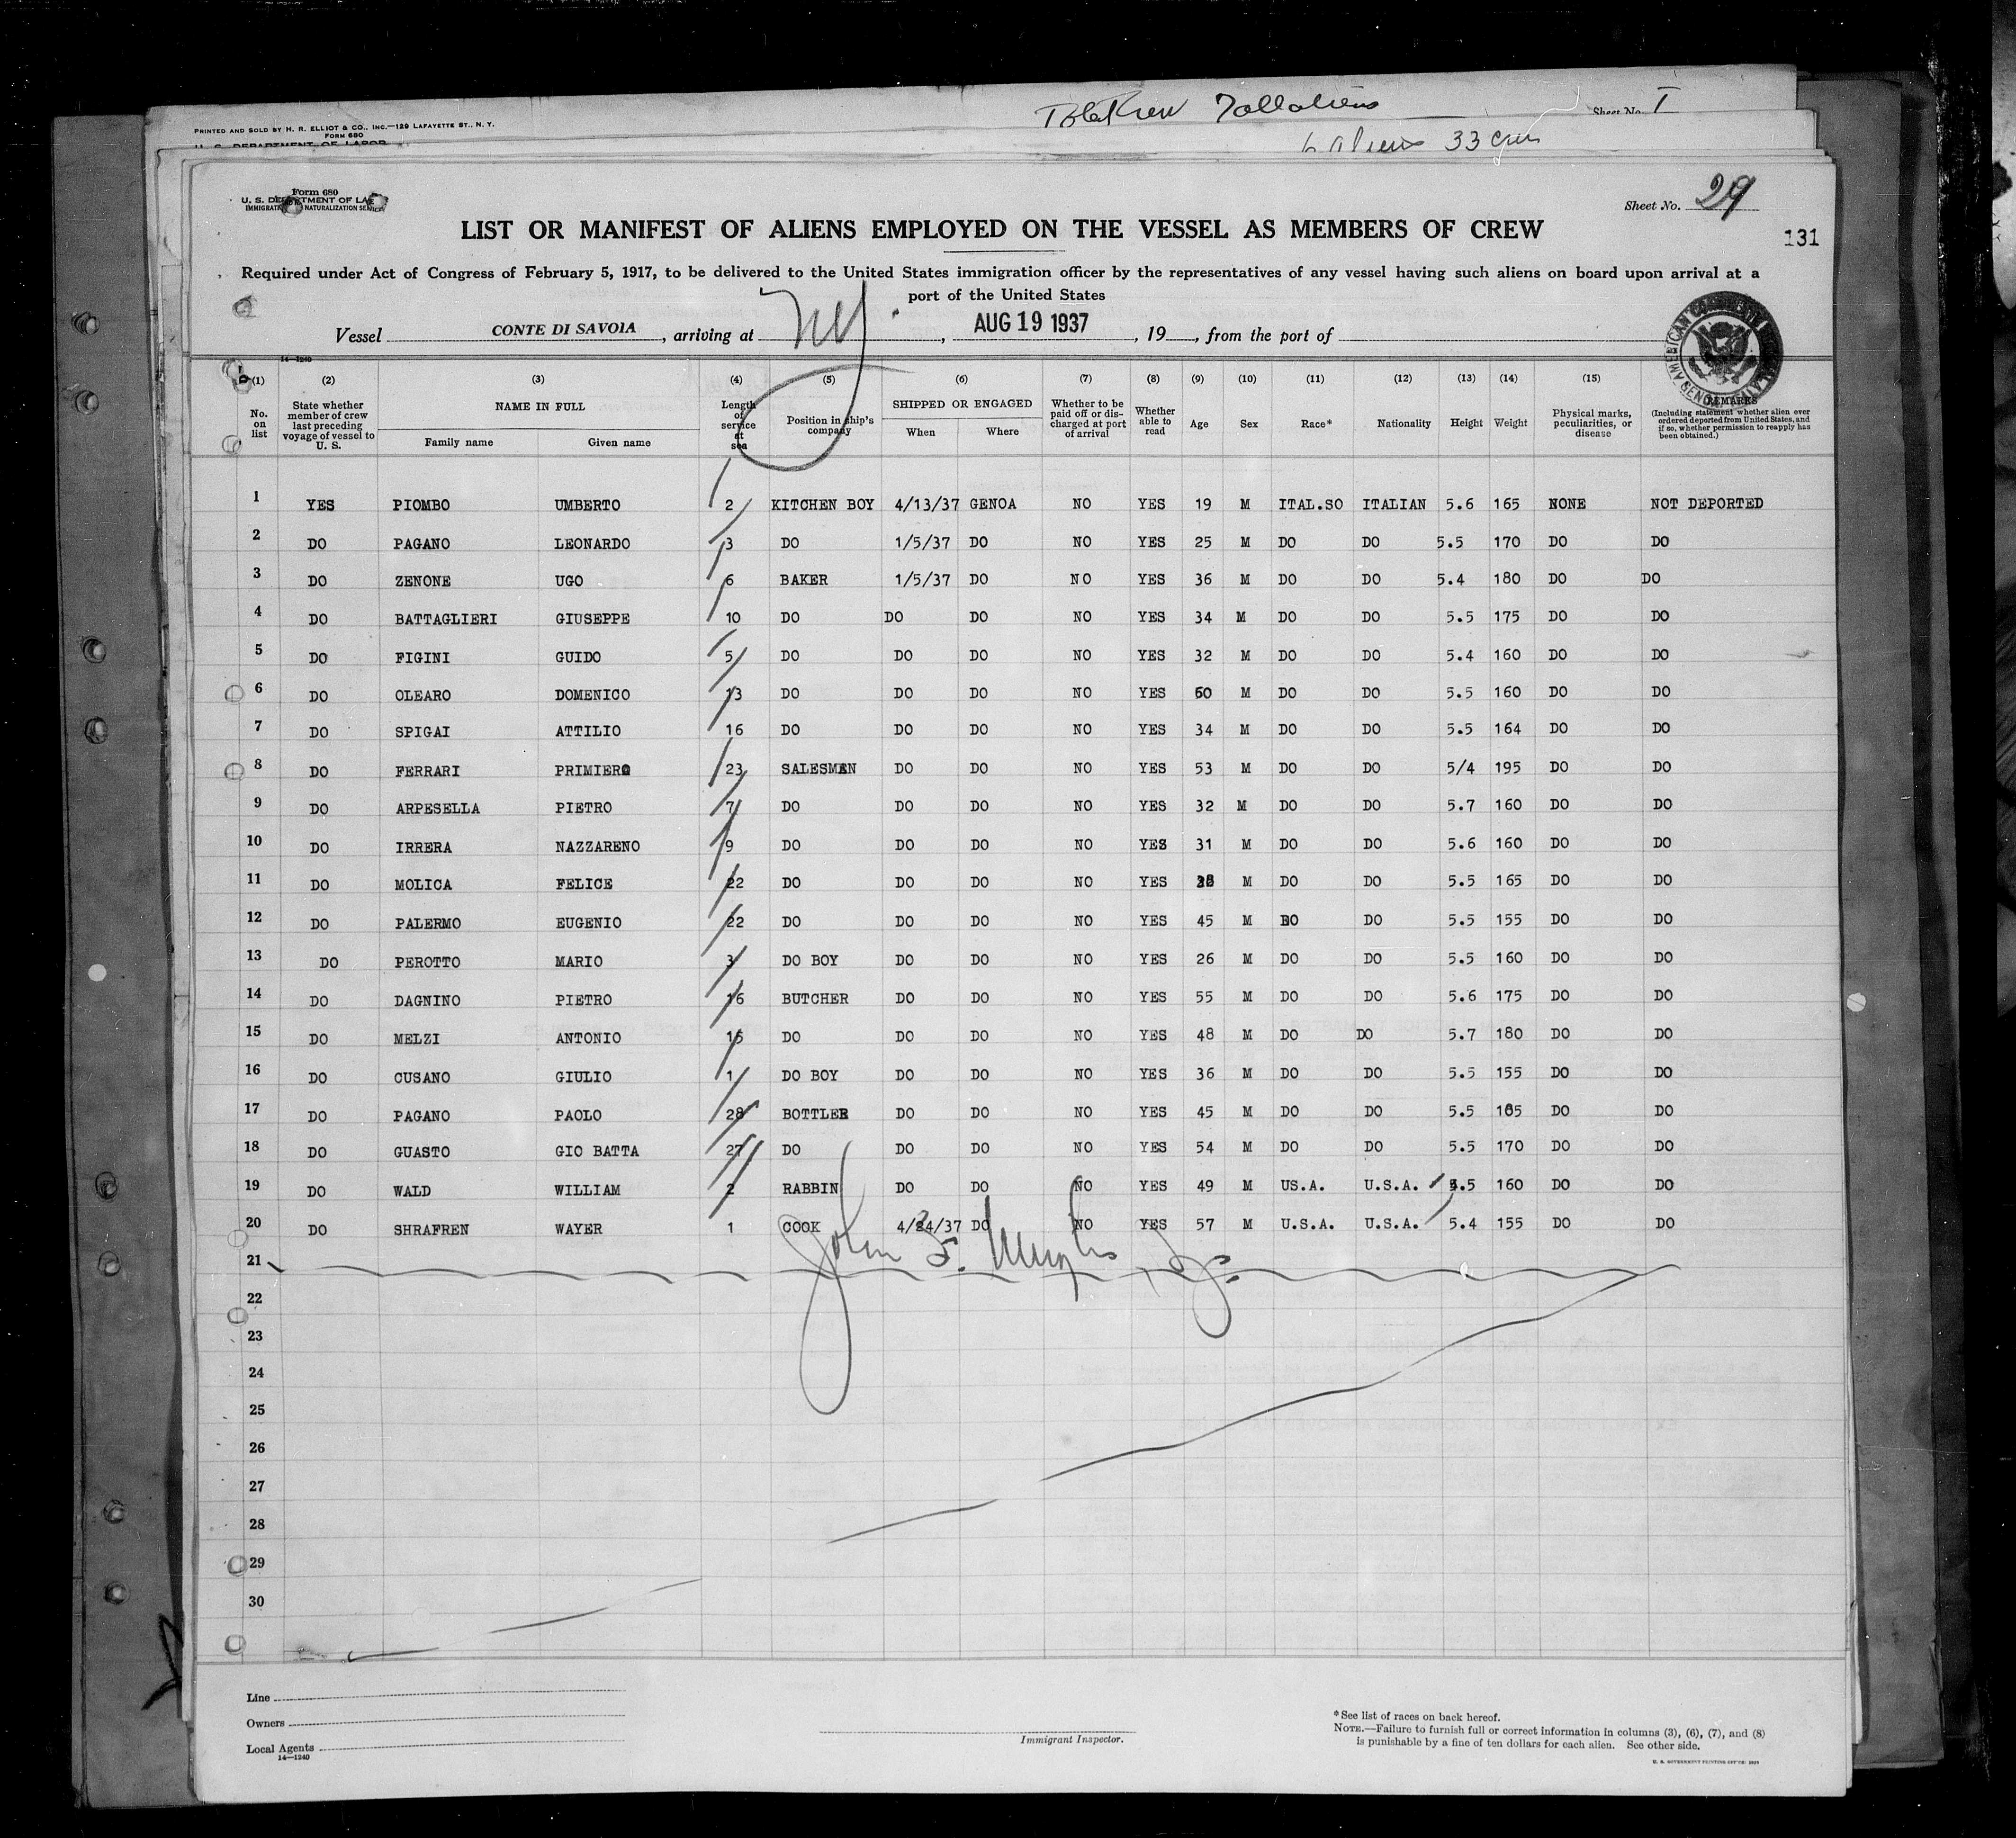 PRINTED AND SOLD BY H. R. ELLIOT & CO., INC.—129 LAFAYETTE ST., N. Y.
FORM 680
U. S. DEPARTMENT OF LABOR
Sheet No. I
aliens 33 crew
Form 680
U. S. DEPARTMENT OF LABOR
IMMIGRATION NATURALIZATION SERVICE
Sheet No. 29
LIST OR MANIFEST OF ALIENS EMPLOYED ON THE VESSEL AS MEMBERS OF CREW
131
Required under Act of Congress of February 5, 1917, to be delivered to the United States immigration officer by the representatives of any vessel having such aliens on board upon arrival at a
port of the United States
Vessel CONTE DI SAVOIA, arriving at NY, AUG 19 1937, 19__, from the port of
14—1240
(1) (2) (3) (4) (5) (6) (7) (8) (9) (10) (11) (12) (13) (14) (15)
No. on list | State whether member of crew last preceding voyage of vessel to U. S. | NAME IN FULL Family name Given name | Length of service at sea | Position in ship's company | SHIPPED OR ENGAGED When Where | Whether to be paid off or discharged at port of arrival | Whether able to read | Age | Sex | Race* | Nationality | Height | Weight | Physical marks, peculiarities, or disease | REMARKS (Including statement whether alien ever ordered deported from United States, and if so, whether permission to reapply has been obtained.)
1 YES PIOMBO UMBERTO 2 KITCHEN BOY 4/13/37 GENOA NO YES 19 M ITAL.SO ITALIAN 5.6 165 NONE NOT DEPORTED
2 DO PAGANO LEONARDO 3 DO 1/5/37 DO NO YES 25 M DO DO 5.5 170 DO DO
3 DO ZENONE UGO 6 BAKER 1/5/37 DO NO YES 36 M DO DO 5.4 180 DO DO
4 DO BATTAGLIERI GIUSEPPE 10 DO DO DO NO YES 34 M DO DO 5.5 175 DO DO
5 DO FIGINI GUIDO 5 DO DO DO NO YES 32 M DO DO 5.4 160 DO DO
6 DO OLEARO DOMENICO 13 DO DO DO NO YES 50 M DO DO 5.5 160 DO DO
7 DO SPIGAI ATTILIO 16 DO DO DO NO YES 34 M DO DO 5.5 164 DO DO
8 DO FERRARI PRIMIERO 23 SALESMEN DO DO NO YES 53 M DO DO 5/4 195 DO DO
9 DO ARPESELLA PIETRO 7 DO DO DO NO YES 32 M DO DO 5.7 160 DO DO
10 DO IRRERA NAZZARENO 9 DO DO DO NO YES 31 M DO DO 5.6 160 DO DO
11 DO MOLICA FELICE 22 DO DO DO NO YES M DO DO 5.5 165 DO DO
12 DO PALERMO EUGENIO 22 DO DO DO NO YES 45 M DO DO 5.5 155 DO DO
13 DO PEROTTO MARIO 3 DO BOY DO DO NO YES 26 M DO DO 5.5 160 DO DO
14 DO DAGNINO PIETRO 16 BUTCHER DO DO NO YES 55 M DO DO 5.6 175 DO DO
15 DO MELZI ANTONIO 15 DO DO DO NO YES 48 M DO DO 5.7 180 DO DO
16 DO CUSANO GIULIO 1 DO BOY DO DO NO YES 36 M DO DO 5.5 155 DO DO
17 DO PAGANO PAOLO 28 BOTTLER DO DO NO YES 45 M DO DO 5.5 165 DO DO
18 DO GUASTO GIO BATTA 27 DO DO DO NO YES 54 M DO DO 5.5 170 DO DO
19 DO WALD WILLIAM 2 RABBIN DO DO NO YES 49 M US.A. U.S.A. 5.5 160 DO DO
20 DO SHRAFREN WAYER 1 COOK 4/24/37 DO NO YES 57 M U.S.A. U.S.A. 5.4 155 DO DO
John F. Murphy Jr.
21
22
23
24
25
26
27
28
29
30
Line
Owners
Local Agents
14—1240
Immigrant Inspector.
*See list of races on back hereof.
NOTE.—Failure to furnish full or correct information in columns (3), (6), (7), and (8)
is punishable by a fine of ten dollars for each alien. See other side.